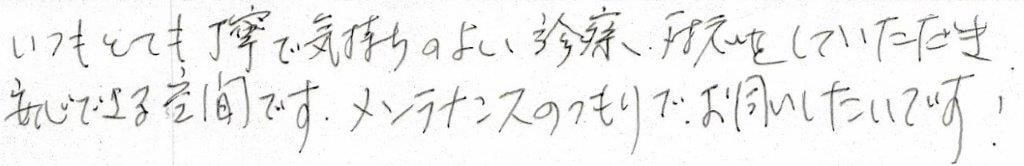 いつもとても丁寧で気持ちのよい診療、対応をしていただき
安心できる空間です。メンテナンスのつもりで、お伺いしたいです!